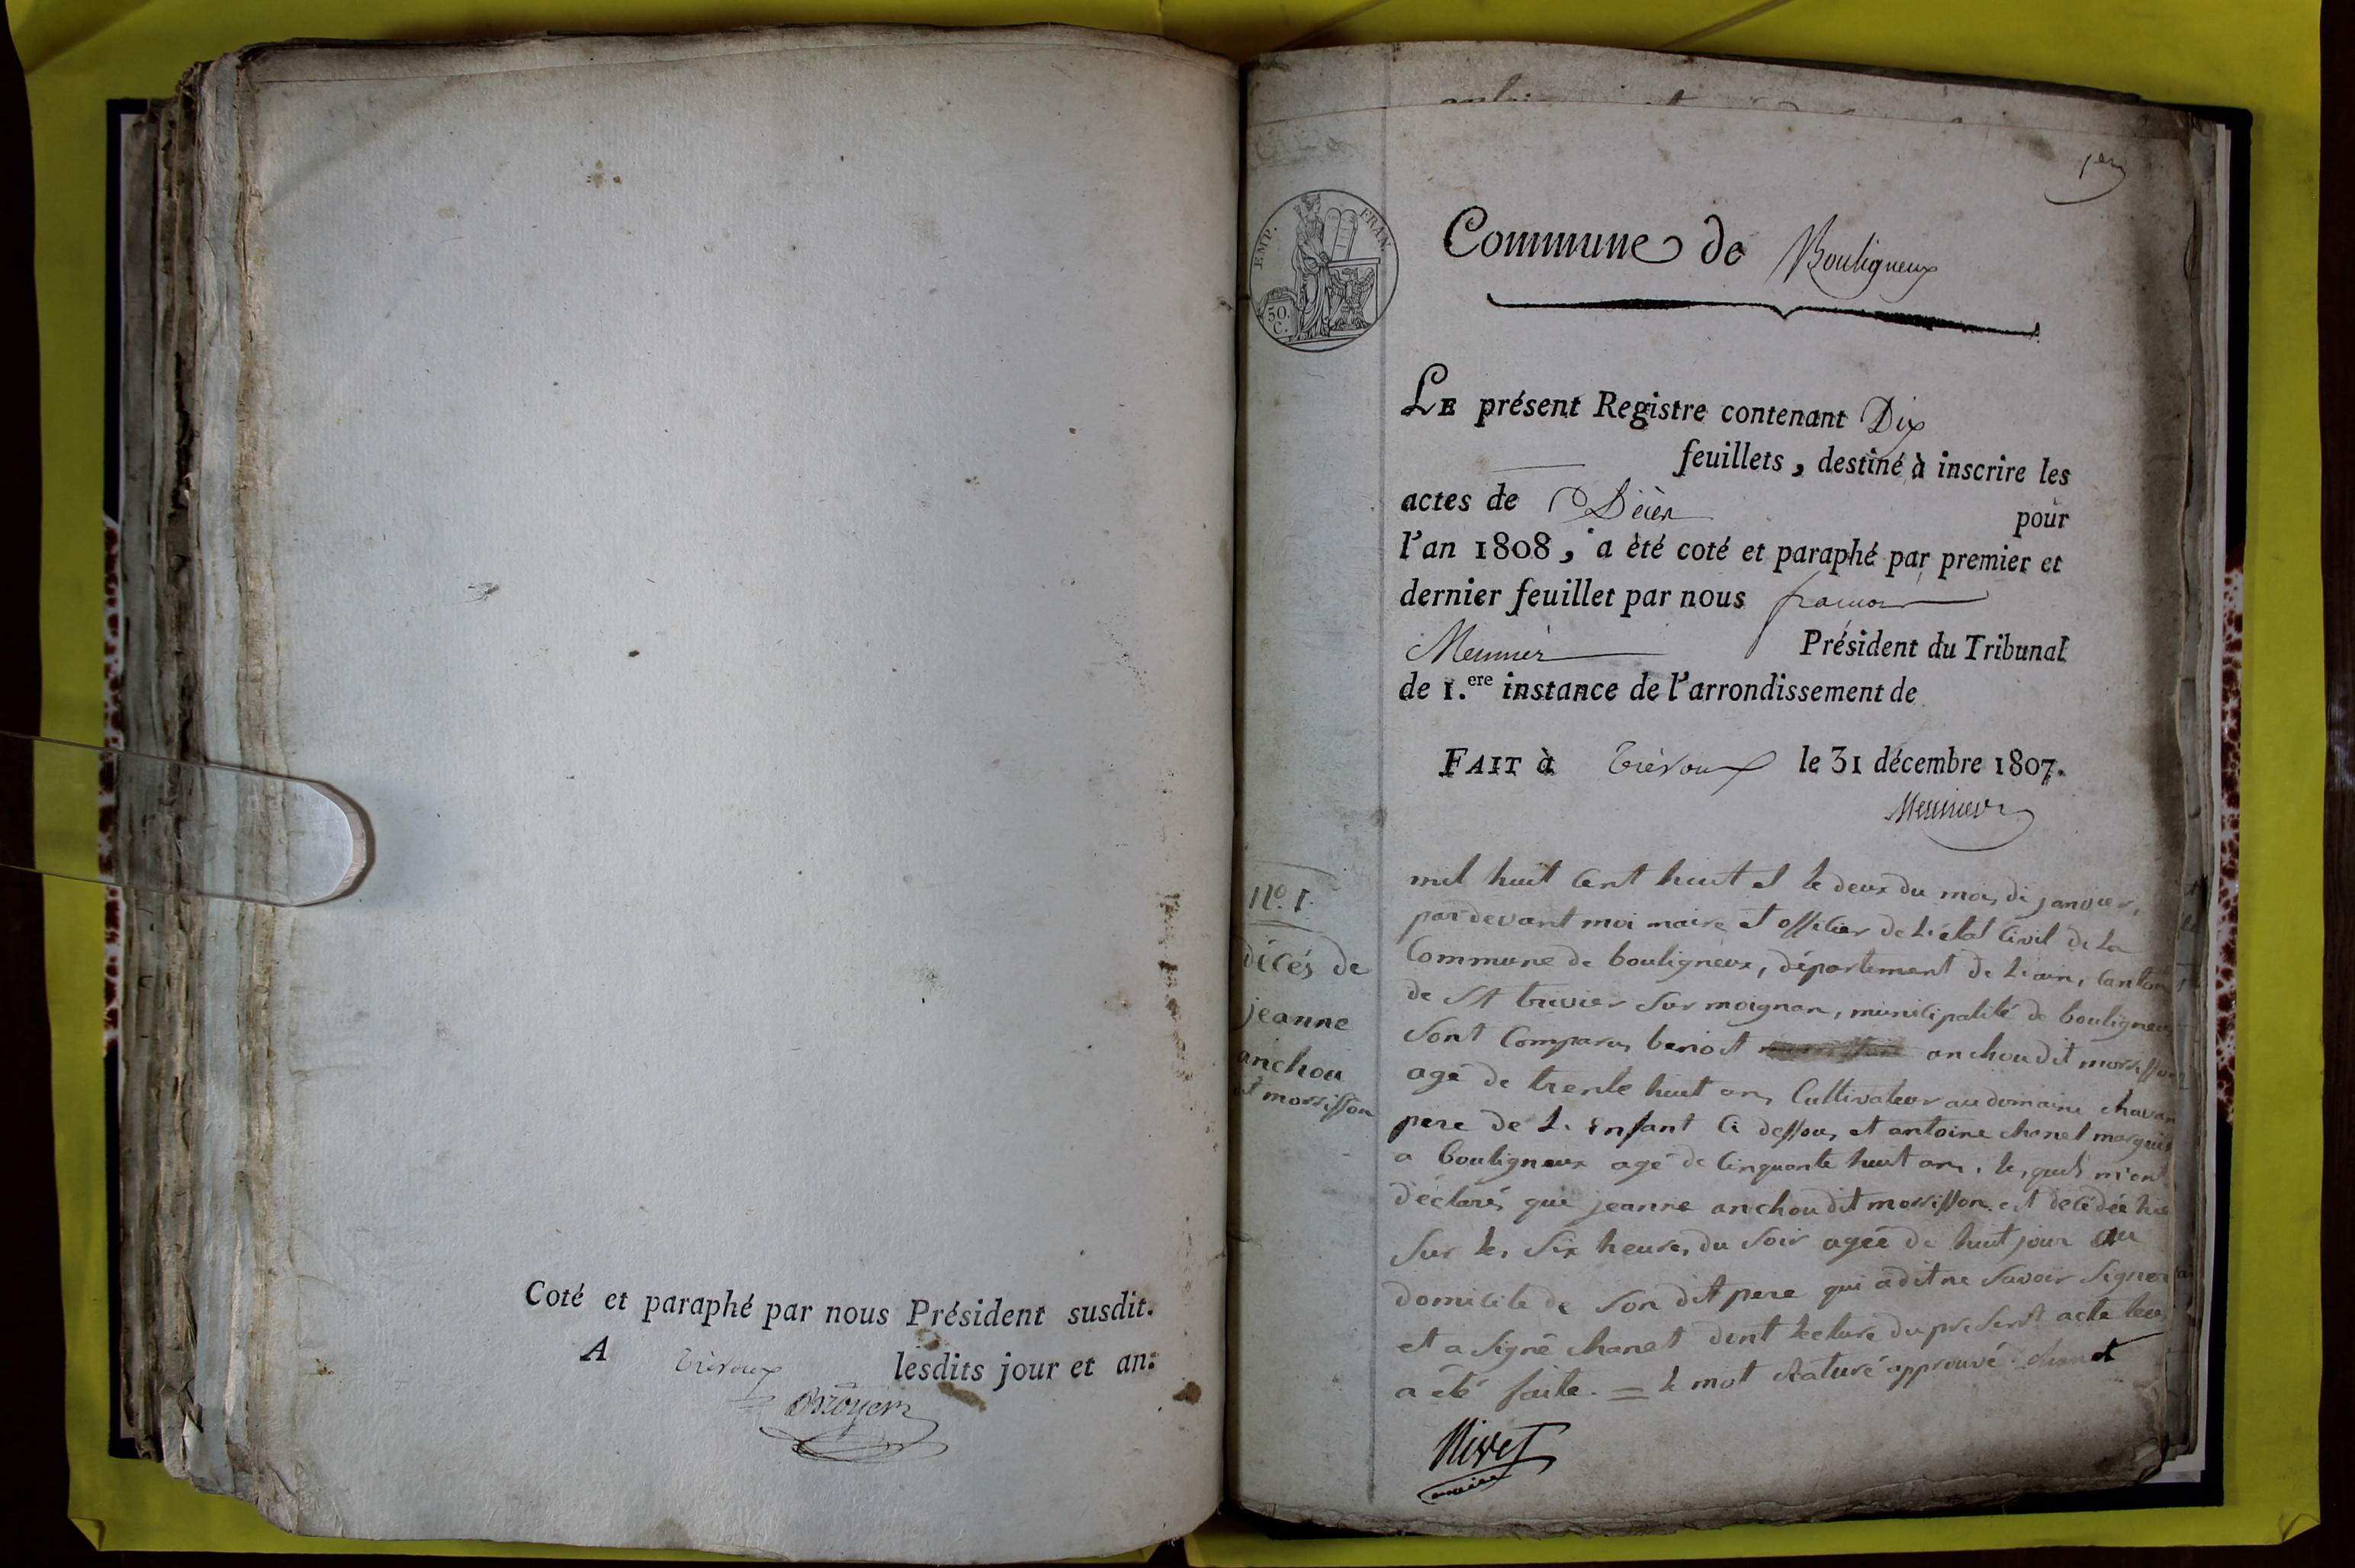 Coté et paraphé par nous Président susdit.
A Trévoux lesdits jour et an.
1er
EMP. FRAN.
50.
C.
Commune de Bouligneux
LE présent Registre contenant Dix
feuillets, destiné à inscrire les
actes de Décès pour
l'an 1808, a èté coté et paraphé par premier et
dernier feuillet par nous
Meunier Président du Tribunal
de 1.ere instance de l'arrondissement de
FAIT à Trévoux le 31 décembre 1807.
Meunier
N°. 1.
décés de
jeanne
anchou
dit morisson
mil huit cent huit et le deux du mois de janvier,
pardevant moi maire et officier de l'état civil de la
Commune de bouligneux, département de l'ain, canton
de St trivier sur moignan, municipalité de bouligneux
sont comparus benoit anchou dit morisson
agé de trente huit ans cultivateur au domaine chavan
pere de l'enfant ci dessous et antoine chanel
a bouligneux agé de cinquante huit ans. lesquels m'ont
déclarés que jeanne anchou dit morisson est décédée hier
sur les six heures du soir agée de huit jour au
domicile de son dit pere qui a dit ne savoir signer
et a signé chanel dont lecture du present acte leur
a été faite. = le mot raturé approuvé. chanel
Nivet
maire